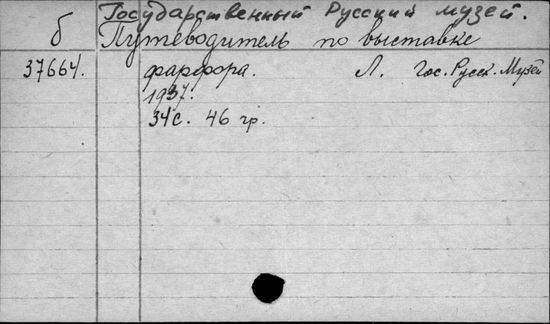 Государственный Русский музей.
б Путеводитель по выставке
37664. фарфора. Л. Гос. Русск. Музей
1937.
34с. 46 гр.